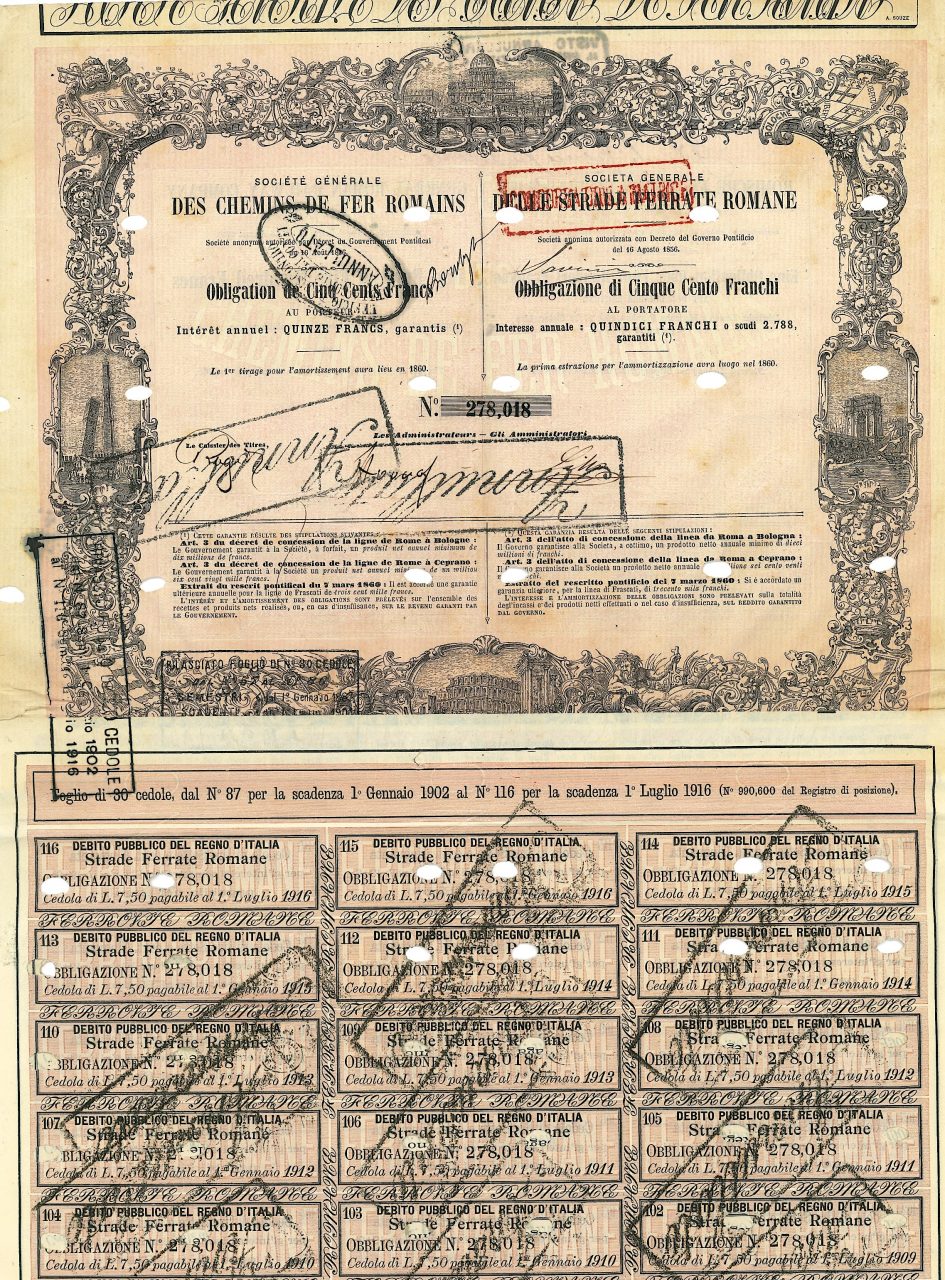 A. SOUZE
SOCIÉTÉ GÉNÉRALE
DES CHEMINS DE FER ROMAINS
Société anonyme autorisée par Décret du Gouvernement Pontifical
Obligation de Cinq Cents Francs
AU PORTEUR
Intérêt annuel : QUINZE FRANCS, garantis (1)
Le 1er tirage pour l'amortissement aura lieu en 1860.
SOCIETA GENERALE
DELLE STRADE FERRATE ROMANE
Società anonima autorizzata con Decreto del Governo Pontificio
del 16 Agosto 1856.
Obbligazione di Cinque Cento Franchi
AL PORTATORE
Interesse annuale : QUINDICI FRANCHI o scudi 2.788,
garantiti (1).
La prima estrazione per l'ammortizzazione avra luogo nel 1860.
No 278,018
Les Administrateurs — Gli Amministratori
Le Caissier des Titres,
(1) CETTE GARANTIE RÉSULTE DES STIPULATIONS SUIVANTES :
Art. 3 du décret de concession de la ligne de Rome à Bologne :
Le Gouvernement garantit à la Société, à forfait, un produit net annuel minimum de
dix millions de francs.
Art. 3 du décret de concession de la ligne de Rome à Ceprano :
Le Gouvernement garantit à la Société un produit net annuel de six millions
six cent vingt mille francs.
Extrait du rescrit pontifical du 7 mars 1860 : Il est accordé une garantie
ultérieure annuelle pour la ligne de Frascati de trois cent mille francs.
L'INTÉRÊT ET L'AMORTISSEMENT DES OBLIGATIONS SONT PRÉLEVÉS sur l'ensemble des
recettes et produits nets réalisés, ou, en cas d'insuffisance, SUR LE REVENU GARANTI PAR
LE GOUVERNEMENT.
(1) QUESTA GARANZIA RESULTA DELLE SEGUENTI STIPULAZIONI :
Art. 3 dell'atto di concessione della linea da Roma a Bologna :
Il Governo garantisce alla Societa, a cottimo, un prodotto netto annuale minimo di dieci
milioni di franchi.
Art. 3 dell'attto di concessione della linea da Roma a Ceprano :
Il Governo garantisce alla Societa un prodotto netto annuale di sei milioni sei cento venti
mille franchi.
Estratto del rescritto pontificio del 7 marzo 1860 : Si è accordato un
garanzia ulteriore, per la linea di Frascati, di trecento mila franchi.
L'INTERESSE E L'AMMORTIZAZIONE DELLE OBLIGAZIONI SONO PRELEVATI sulla totalità
degl'incassi o dei prodotti netti effettuati o nel caso d'insufficienza, SUL REDDITO GARANTITO
DAL GOVERNO.
RILASCIATO FOGLIO DI No 30 CEDOLE
SEMESTRI
CEDOLE
1902
1916
Foglio di 30 cedole, dal No 87 per la scadenza 1o Gennaio 1902 al No 116 per la scadenza 1o Luglio 1916 (No 990,600 del Registro di posizione).
116 DEBITO PUBBLICO DEL REGNO D'ITALIA
Strade Ferrate Romane
OBBLIGAZIONE N.o 278,018
Cedola di L.7,50 pagabile al 1.o Luglio 1916
115 DEBITO PUBBLICO DEL REGNO D'ITALIA
Strade Ferrate Romane
OBBLIGAZIONE N.o 278,018
Cedola di L.7,50 pagabile al 1.o Gennaio 1916
114 DEBITO PUBBLICO DEL REGNO D'ITALIA
Strade Ferrate Romane
OBBLIGAZIONE N.o 278,018
Cedola di L.7,50 pagabile al 1.o Luglio 1915
FERROVIE ROMANE FERROVIE ROMANE FERROVIE ROMANE
113 DEBITO PUBBLICO DEL REGNO D'ITALIA
Strade Ferrate Romane
OBBLIGAZIONE N.o 278,018
Cedola di L.7,50 pagabile al 1.o Gennaio 1915
112 DEBITO PUBBLICO DEL REGNO D'ITALIA
Strade Ferrate Romane
OBBLIGAZIONE N.o 278,018
Cedola di L.7,50 pagabile al 1.o Luglio 1914
111 DEBITO PUBBLICO DEL REGNO D'ITALIA
Strade Ferrate Romane
OBBLIGAZIONE N.o 278,018
Cedola di L.7,50 pagabile al 1.o Gennaio 1914
FERROVIE ROMANE FERROVIE ROMANE FERROVIE ROMANE
110 DEBITO PUBBLICO DEL REGNO D'ITALIA
Strade Ferrate Romane
OBBLIGAZIONE N.o 278,018
Cedola di L.7,50 pagabile al 1.o Luglio 1913
109 DEBITO PUBBLICO DEL REGNO D'ITALIA
Strade Ferrate Romane
OBBLIGAZIONE N.o 278,018
Cedola di L.7,50 pagabile al 1.o Gennaio 1913
108 DEBITO PUBBLICO DEL REGNO D'ITALIA
Strade Ferrate Romane
OBBLIGAZIONE N.o 278,018
Cedola di L.7,50 pagabile al 1.o Luglio 1912
FERROVIE ROMANE FERROVIE ROMANE FERROVIE ROMANE
107 DEBITO PUBBLICO DEL REGNO D'ITALIA
Strade Ferrate Romane
OBBLIGAZIONE N.o 278,018
Cedola di L.7,50 pagabile al 1.o Gennaio 1912
106 DEBITO PUBBLICO DEL REGNO D'ITALIA
Strade Ferrate Romane
OBBLIGAZIONE N.o 278,018
Cedola di L.7,50 pagabile al 1.o Luglio 1911
105 DEBITO PUBBLICO DEL REGNO D'ITALIA
Strade Ferrate Romane
OBBLIGAZIONE N.o 278,018
Cedola di L.7,50 pagabile al 1.o Gennaio 1911
FERROVIE ROMANE FERROVIE ROMANE FERROVIE ROMANE
104 DEBITO PUBBLICO DEL REGNO D'ITALIA
Strade Ferrate Romane
OBBLIGAZIONE N.o 278,018
Cedola di L.7,50 pagabile al 1.o Luglio 1910
103 DEBITO PUBBLICO DEL REGNO D'ITALIA
Strade Ferrate Romane
OBBLIGAZIONE N.o 278,018
Cedola di L.7,50 pagabile al 1.o Gennaio 1910
102 DEBITO PUBBLICO DEL REGNO D'ITALIA
Strade Ferrate Romane
OBBLIGAZIONE N.o 278,018
Cedola di L.7,50 pagabile al 1.o Luglio 1909